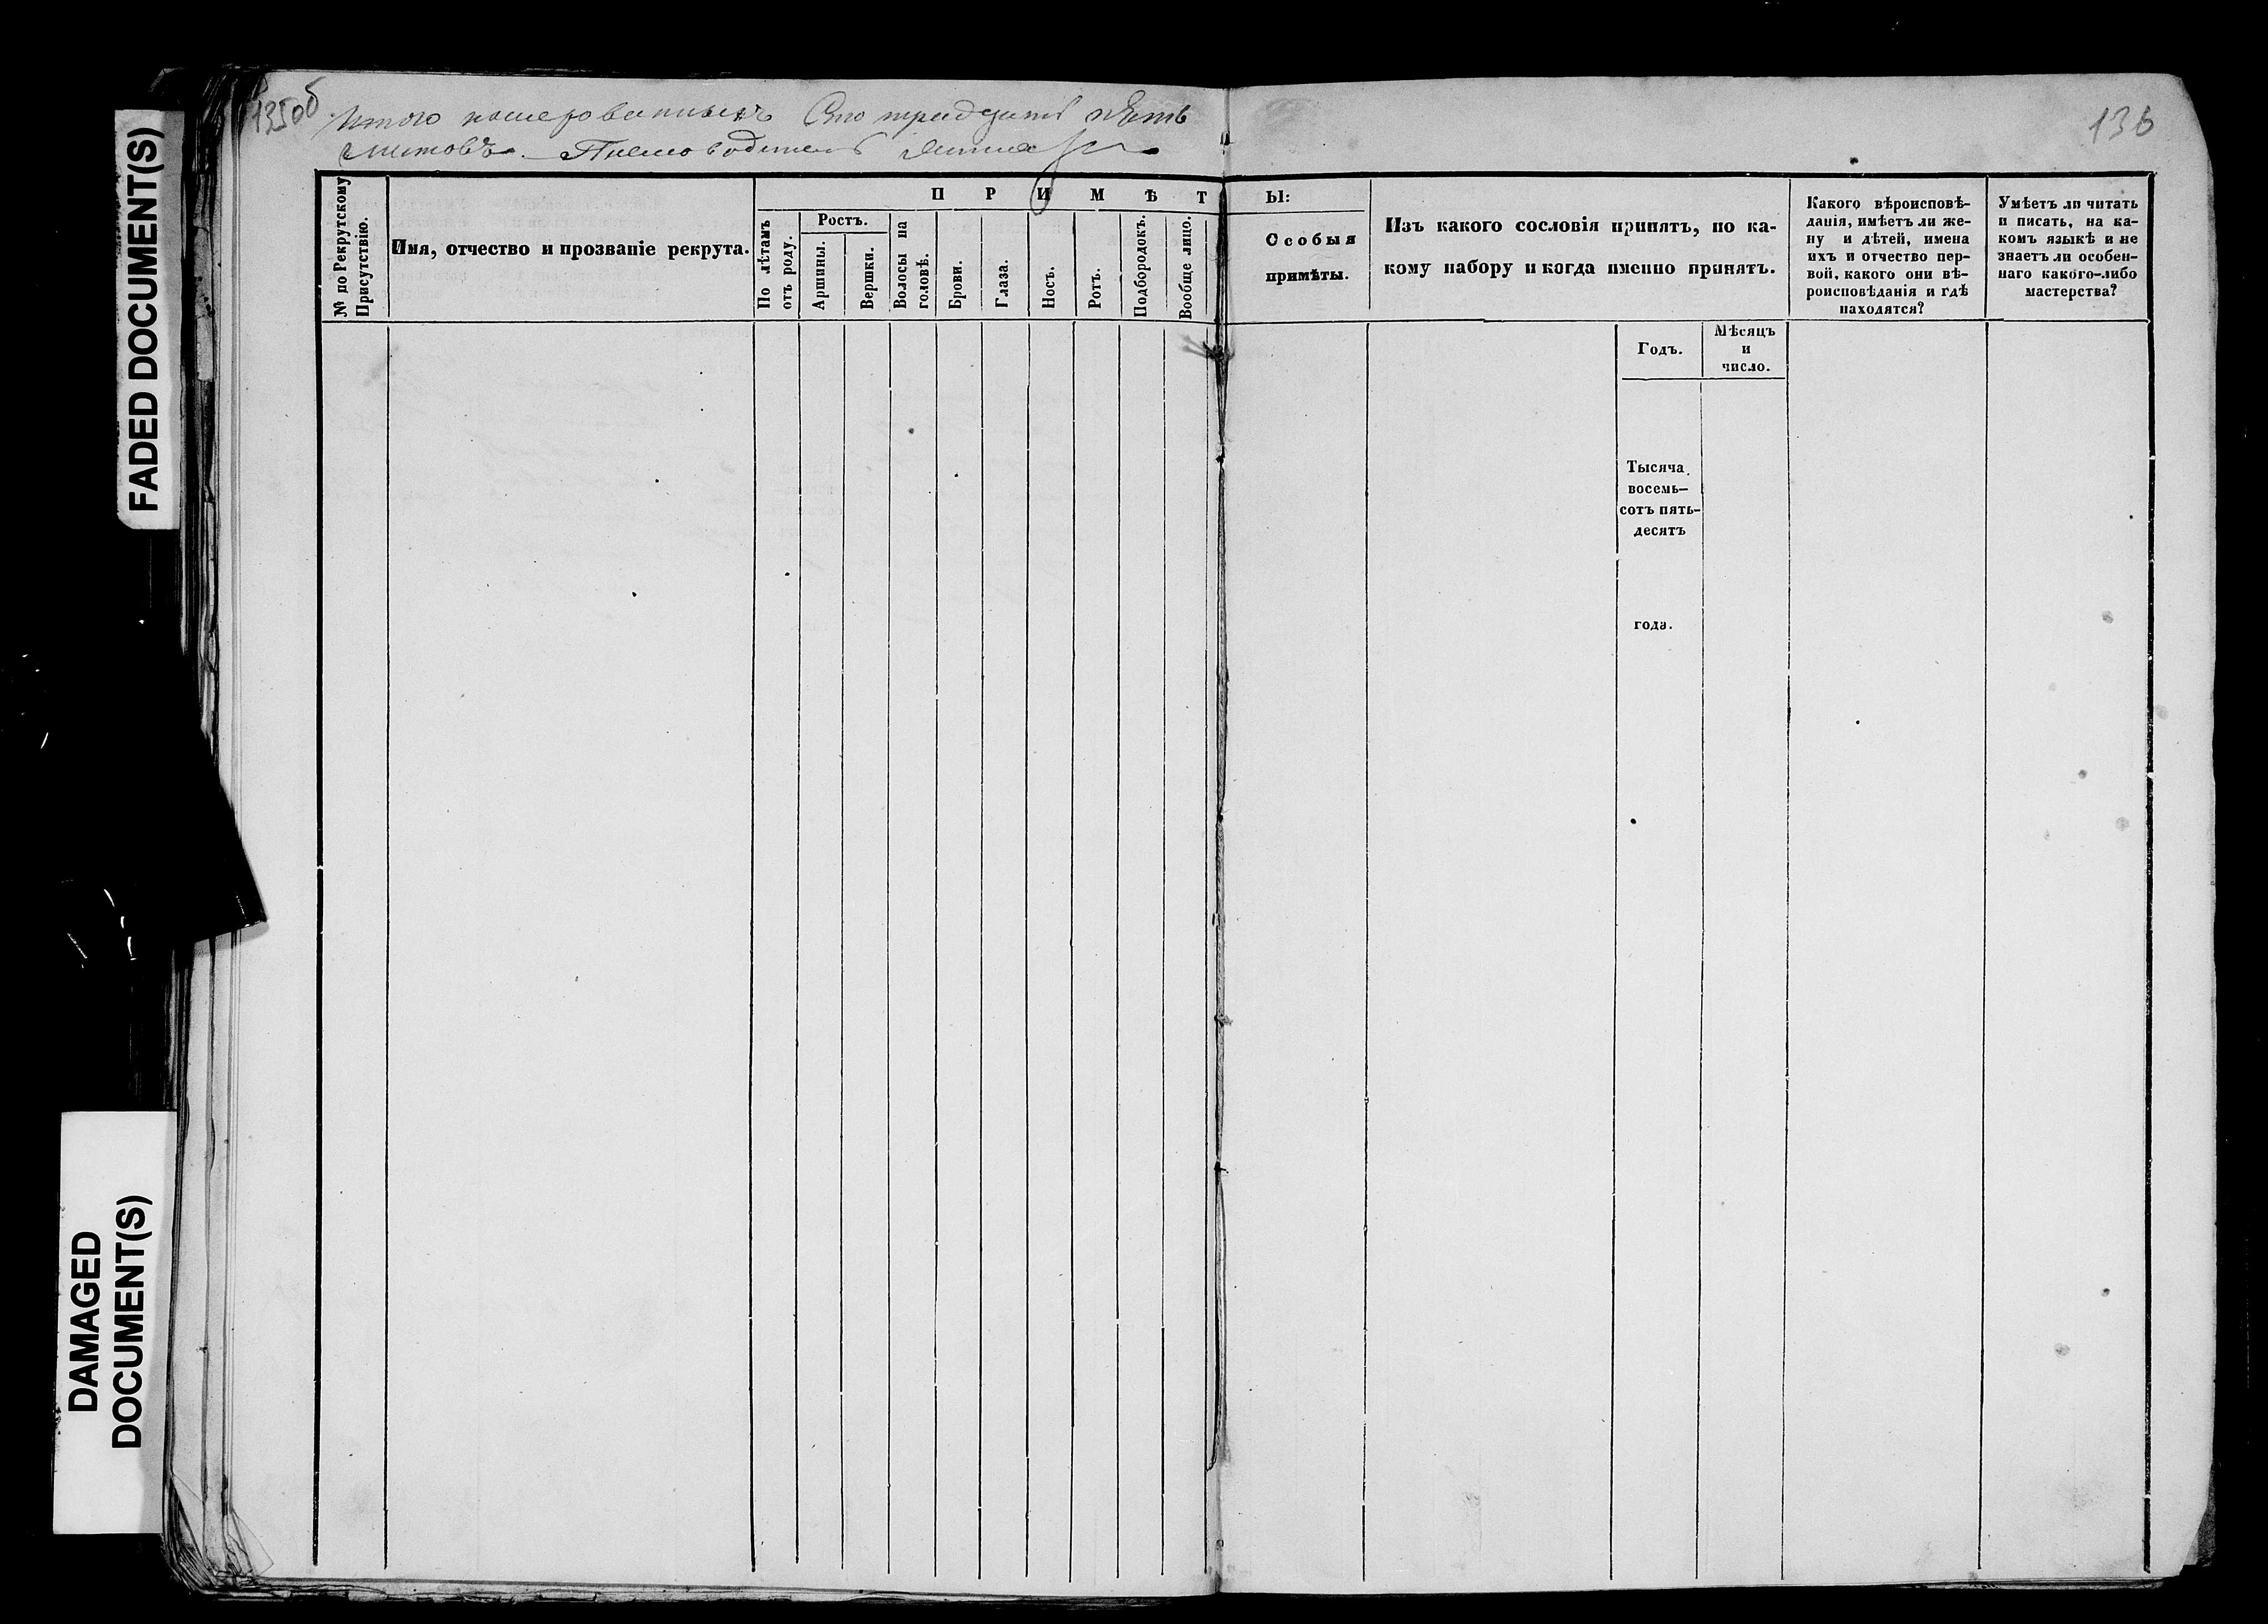 FADED DOCUMENT(S)
DAMAGED
DOCUMENT(S)
135об
136
Итого нумерованныхъ Сто тридцать пять
листовъ. Письмоводитель
№ по Рекрутскому
Присутствію.
Имя, отчество и прозваніе рекрута.
П Р И М Ѣ Т
По лѣтамъ
отъ роду.
Ростъ.
Аршины.
Вершки.
Волосы на
головѣ.
Брови.
Глаза.
Носъ.
Ротъ.
Подбородокъ.
Вообще лицо.
Ы:
Особыя
примѣты.
Изъ какого сословія принятъ, по ка-
кому набору и когда именно принятъ.
Годъ.
Мѣсяцъ
и
число.
Тысяча
восемь-
сотъ пять-
десятъ
года.
Какого вѣроисповѣ-
данія, имѣетъ ли же-
ну и дѣтей, имена
ихъ и отчество пер-
вой, какого они вѣ-
роисповѣданія и гдѣ
находятся?
Умѣетъ ли читать
и писать, на ка-
комъ языкѣ и не
знаетъ ли особен-
наго какого-либо
мастерства?